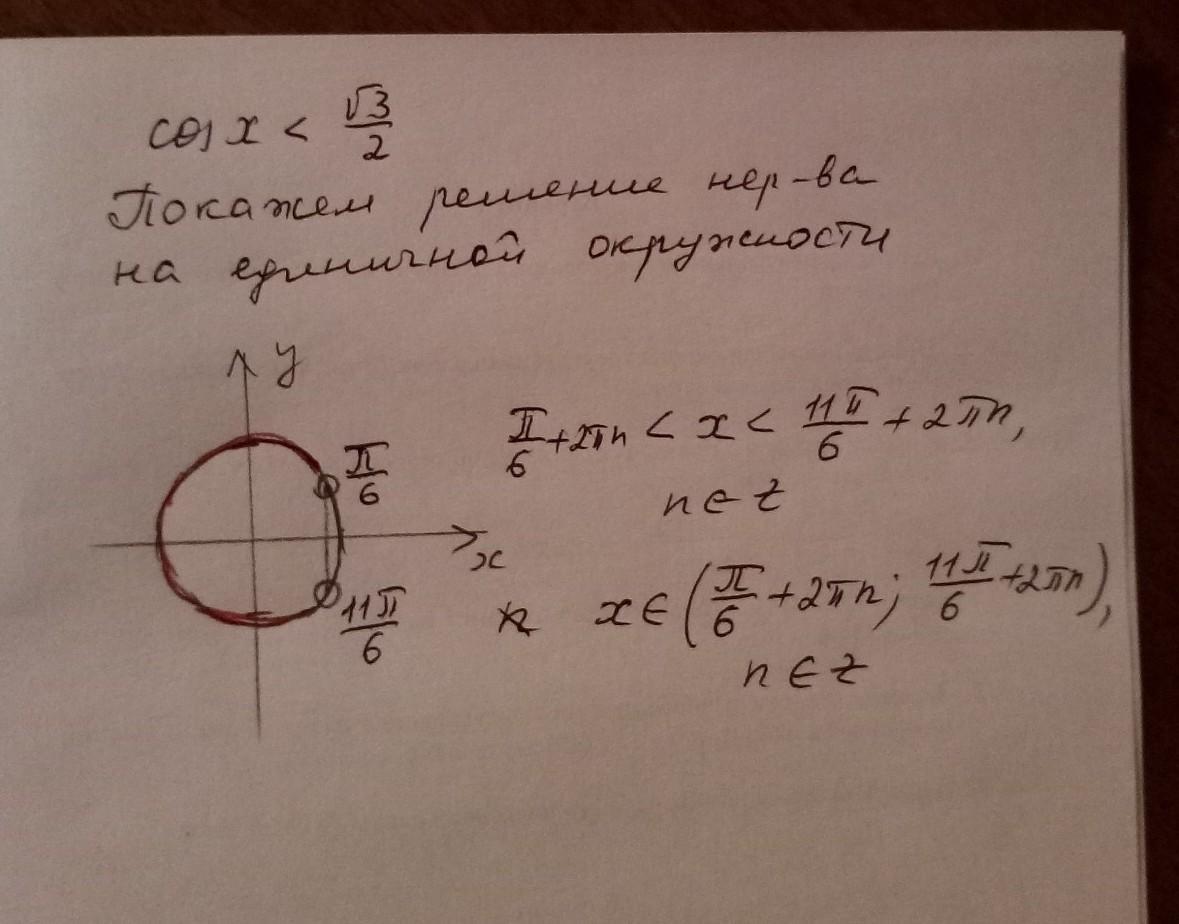 cos x < √3/2
Покажем решение нер-ва
на единичной окружности
y
π/6
x
11π/6
π/6 + 2πn < x < 11π/6 + 2πn,
n ∈ Z
x ∈ (π/6 + 2πn; 11π/6 + 2πn),
n ∈ Z